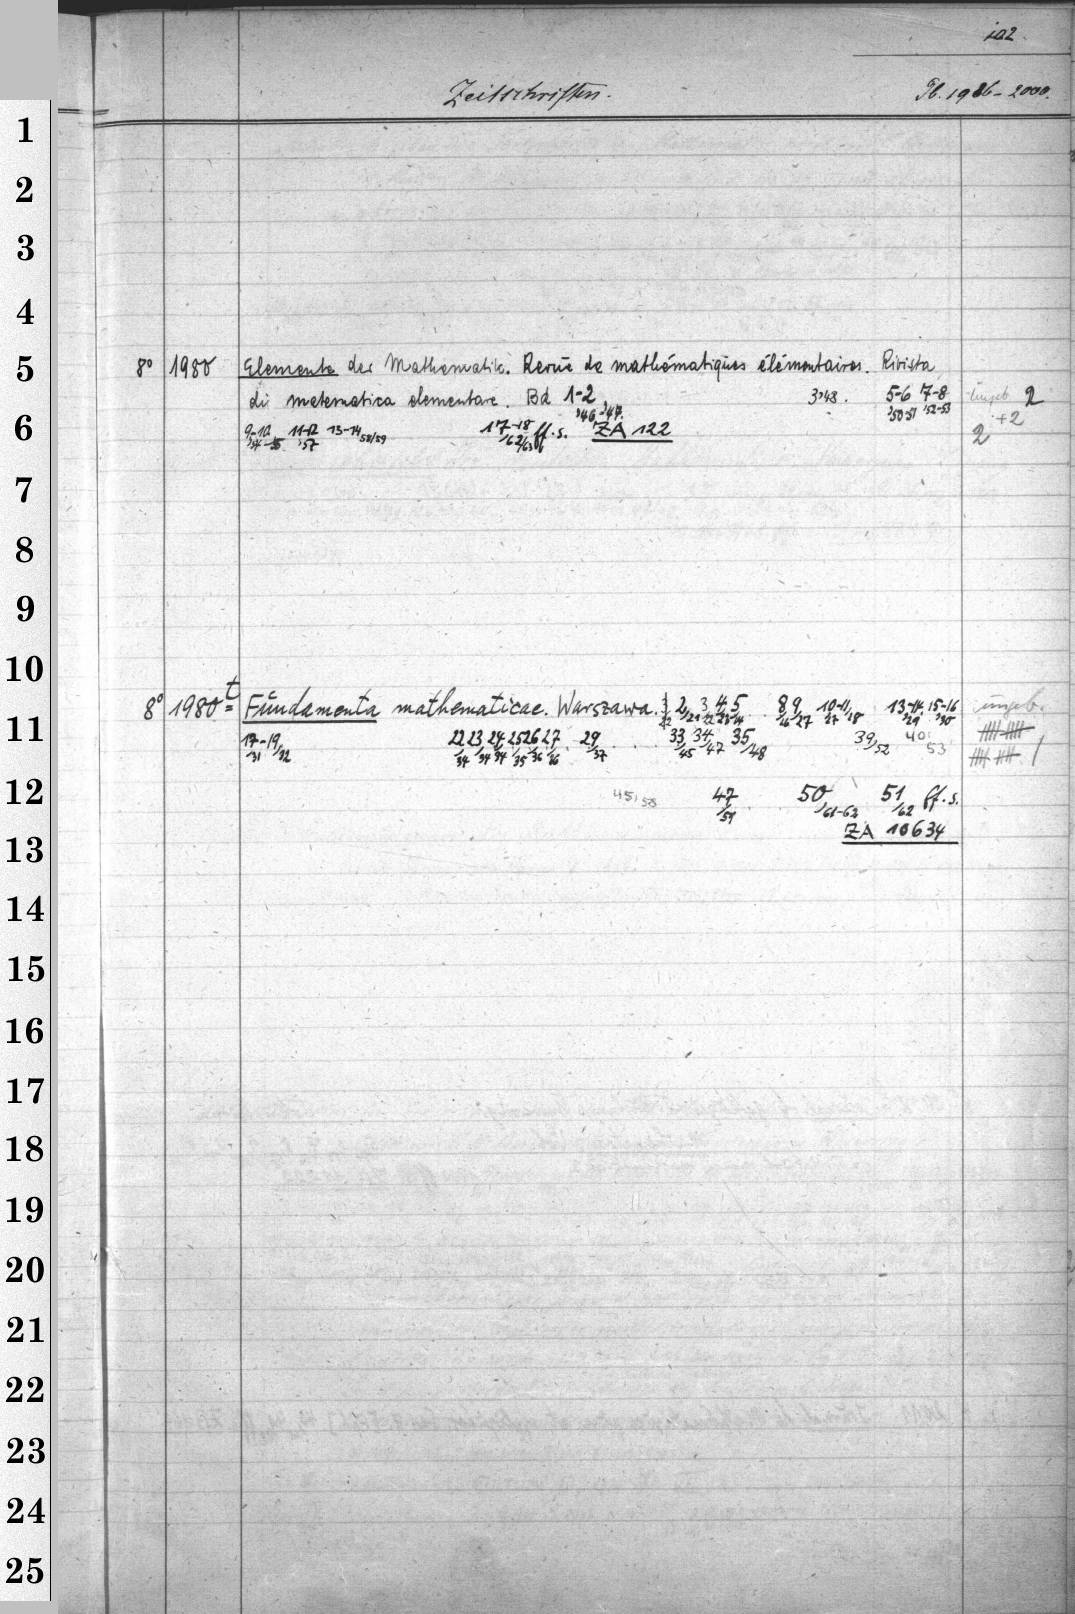 102
Zeitschriften.
Pb. 1986-2000.
1
2
3
4
5
8° 1980 Elemente der Mathematik. Revue de mathématiques élémentaires. Rivista
di matematica elementare. Bd 1-2, '46-'47. 3,'48. 5-6 '50-51 7-8 '52-53 ungeb 2
+2
6
9-10 11-12 '57 13-14 58/59 17-18 '62/63 ff. s. ZA 122 2
7
8
9
10
8° 1980t Fundamenta mathematicae. Warszawa. 1 2, 3 4 5 8 9 10-11, 13-14 15-16 ungeb.
11
17-19 31/32 22 23 24 25 26 27 29/37 33/45 34/47 35/48 39/52 40/53
12
45,58 47/59 50/61-62 51/62 ff. s.
ZA 10634
13
14
15
16
17
18
19
20
21
22
23
24
25